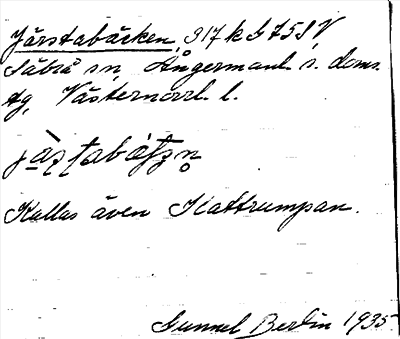 Järstabäcken, 917 k S 75 S, V
Säbrå sn, Ångermanl. s. doms.
dg, Västernorrl. l.
Kallas även Kattrumpan.
Gunnel Berlin 1935